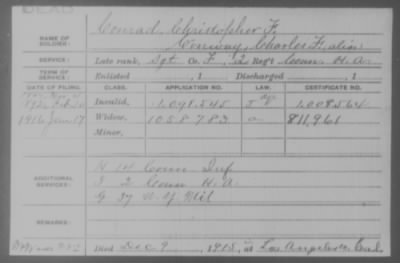 DEAD
NAME OF SOLDIER:
Conrad, Christopher F.
Conway, Charles F., alias
SERVICE:
Late rank, Sgt Co. F, 2 Reg't Conn H.A.
TERM OF SERVICE:
Enlisted , 1 Discharged , 1
DATE OF FILING. CLASS. APPLICATION NO. LAW. CERTIFICATE NO.
Invalid, 1,091,545 1,008,564
1916 Jan 17 Widow, 1058783 a 811,961
Minor,
ADDITIONAL SERVICES:
H 14 Conn Inf
I 2 Conn H.A.
G 37 N.Y. Mil
REMARKS:
Died Dec 9, 1915, at Los Angeles Cal